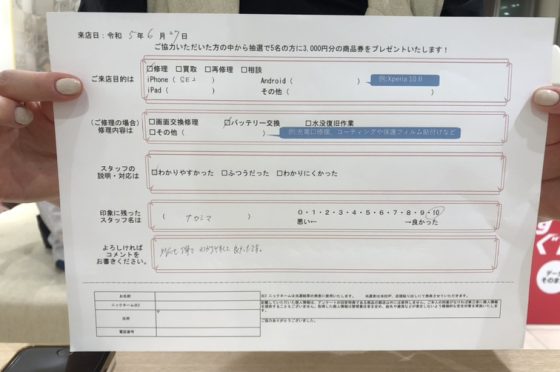 来店日：令和 5年 6月 27日
ご協力いただいた方の中から抽選で5名の方に3,000円分の商品券をプレゼントいたします！
ご来店目的は
☑修理 □買取 □再修理 □相談
iPhone（ SE2 ） Android（ ） 例:Xperia 10 II
iPad（ ） その他（ ）
(ご修理の場合)
修理内容は
□画面交換修理 ☑バッテリー交換 □水没復旧作業
□その他（ ） 例:充電口修理、コーティングや保護フィルム貼付けなど
スタッフの
説明・対応は
□わかりやすかった □ふつうだった □わかりにくかった
印象に残った
スタッフ名は
（ ナカシマ ）
0・1・2・3・4・5・6・7・8・9・10
悪い← →良かった
よろしければ
コメントを
お書きください。
お名前
ニックネーム※2
住所
〒
電話番号
ご協力ありがとうございました。